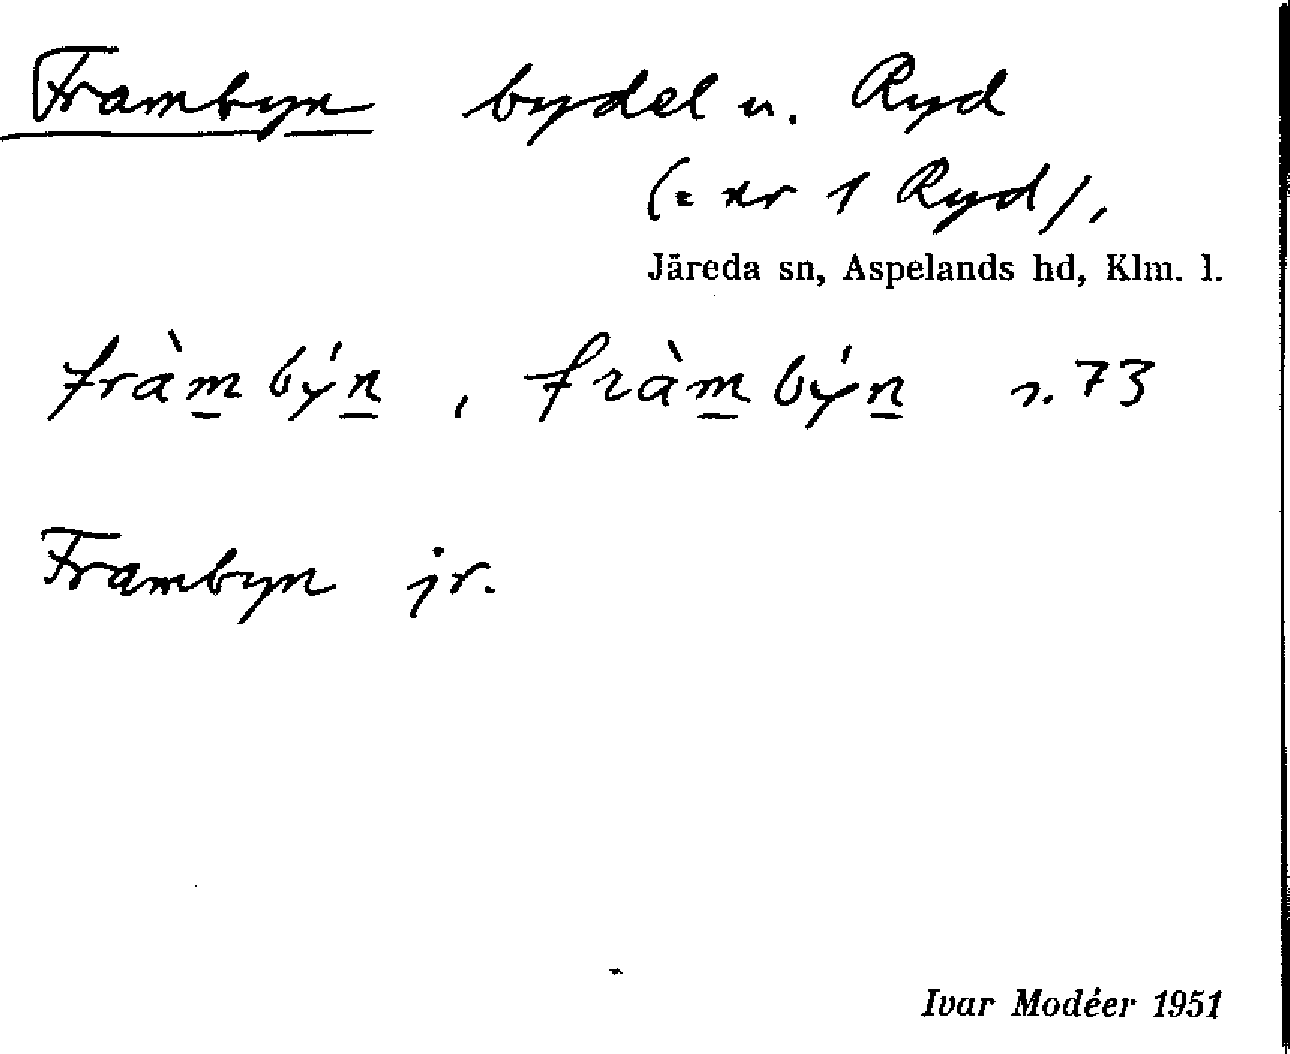 Frambyn bydel u. Ryd
(= nr 1 Ryd),
Järeda sn, Aspelands hd, Klm. l.
fràm̲býn̲, fràm̲býn̲ s. 73
Frambyn jr.
Ivar Modéer 1951